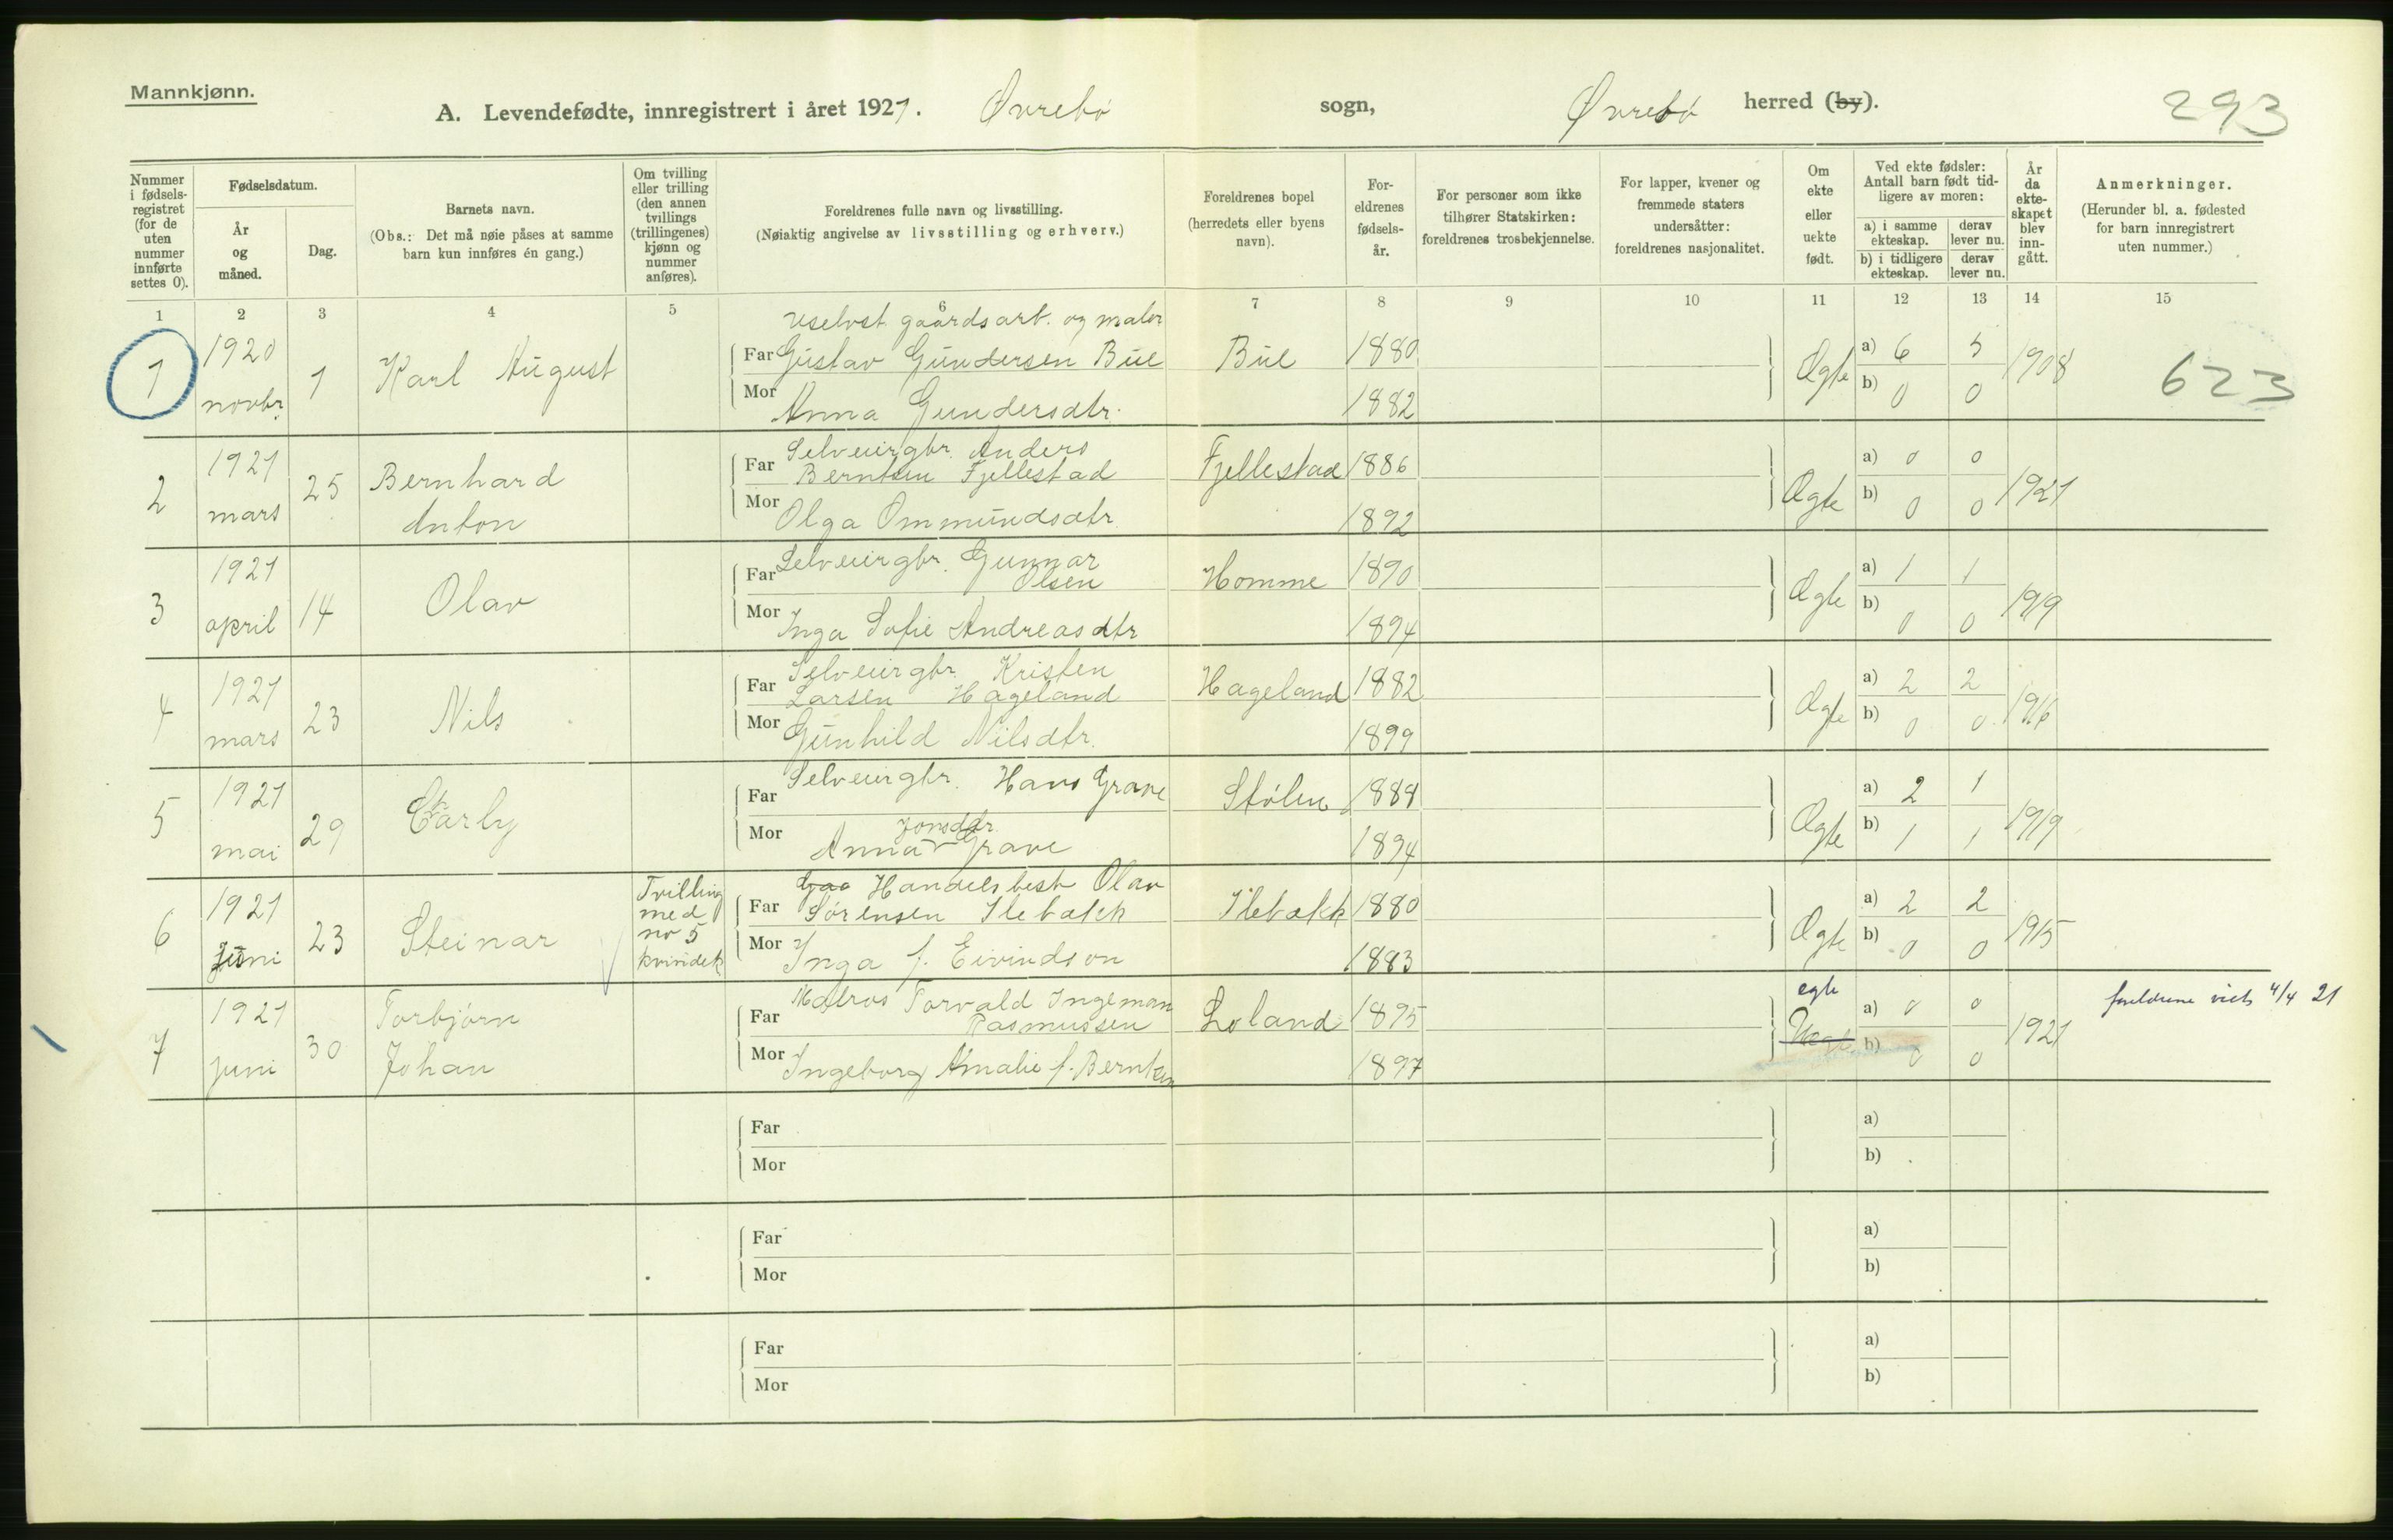 Mannkjønn.
A. Levendefødte, innregistrert i året 1921. Øvrebø sogn, Øvrebø herred (by).
293
Nummer i fødsels-registret (for de uten nummer innførte settes 0).
Fødselsdatum.
År og måned.
Dag.
Barnets navn.
(Obs.: Det må nøie påses at samme barn kun innføres én gang.)
Om tvilling eller trilling (den annen tvillings (trillingenes) kjønn og nummer anføres).
Foreldrenes fulle navn og livsstilling.
(Nøiaktig angivelse av livsstilling og erhverv.)
Foreldrenes bopel (herredets eller byens navn).
For-eldrenes fødsels-år.
For personer som ikke tilhører Statskirken: foreldrenes trosbekjennelse.
For lapper, kvener og fremmede staters undersåtter: foreldrenes nasjonalitet.
Om ekte eller uekte født.
Ved ekte fødsler: Antall barn født tid-ligere av moren:
a) i samme ekteskap.
derav lever nu.
b) i tidligere ekteskap.
derav lever nu.
År da ekte-skapet blev inn-gått.
Anmerkninger.
(Herunder bl. a. fødested for barn innregistrert uten nummer.)
1 2 3 4 5 6 7 8 9 10 11 12 13 14 15
uselvst. gaardsarb. og maler
1 1920 novbr. 1 Karl August Far Gustav Gundersen Bue Bue 1880 Ægte a) 6 5 1908 623
Mor Anna Gundersdtr. 1882 b) 0 0
2 1921 mars 25 Bernhard Anton Far Selveiergbr. Anders Berntsen Fjellestad Fjellestad 1886 Ægte a) 0 0 1921
Mor Olga Ommundsdtr. 1892 b) 0 0
3 1921 april 14 Olav Far Selveiergbr. Gunnar Olsen Homme 1890 Ægte a) 1 1 1919
Mor Inga Sofie Andreasdtr 1894 b) 0 0
4 1921 mars 23 Nils Far Selveiergbr. Kristen Larsen Hageland Hageland 1882 Ægte a) 2 2 1916
Mor Gunhild Nilsdtr. 1899 b) 0 0
5 1921 mai 29 Far Selveiergbr. Hans Grave Stølen 1888 Ægte a) 2 1 1919
Mor Anna Jonsdtr. Grave 1894 b) 1 1
6 1921 Juni 23 Steinar Tvilling med no 5 kvindek Far Handelsbest. Olav Sørensen Ilebækk Ilebækk 1880 Ægte a) 2 2 1915
Mor Inga f. Eivindson 1883 b) 0 0
7 1921 juni 30 Torbjørn Johan Far Matros Torvald Ingeman Rasmussen Loland 1895 egte Uægte a) 0 0 1921 foreldrene viet 4/4 21
Mor Ingeborg Amalie f. Berntsen 1897 b) 0 0
Far a)
Mor b)
Far a)
Mor b)
Far a)
Mor b)